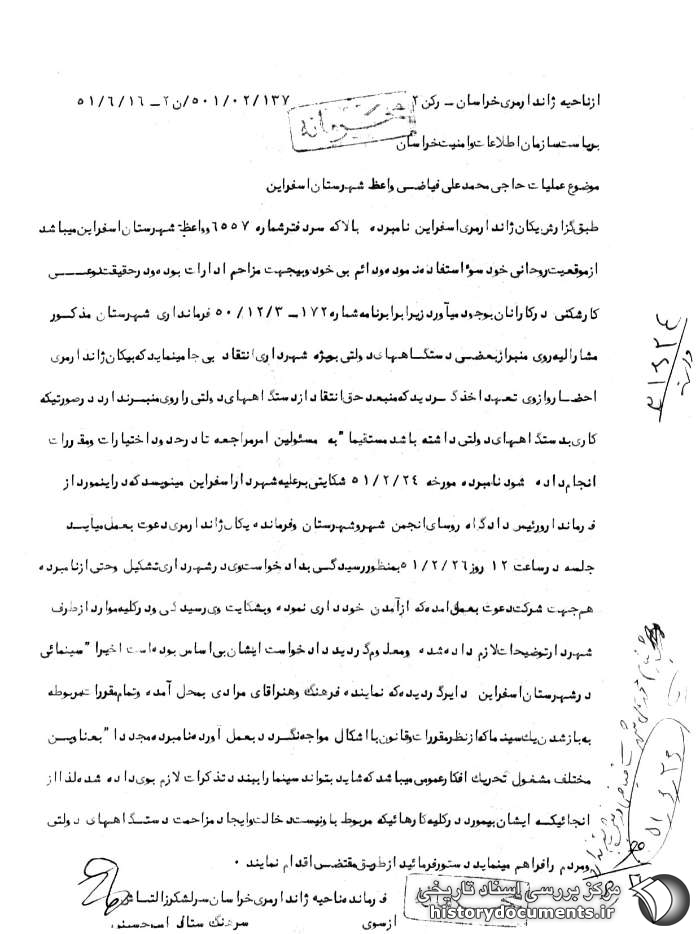 ازناحیه ژاندارمری خراسان ـ رکن ۲ ۵۰۱/۰۲/۱۳۷/ن۲ ـ ۵۱/۶/۱۶
محرمانه
بریاست سازمان اطلاعات وامنیت خراسان
موضوع عملیات حاجی محمدعلی فیاضی واعظ شهرستان اسفراین
طبق گزارش یکان ژاندارمری اسفراین نامبرده بالاکه سردفترشماره ۶۵۵۷ وواعظ شهرستان اسفراین میباشد
ازموقعیت روحانی خود سوٴاستفاده نموده ودائم بی خودوبیجهت مزاحم ادارات بوده ودرحقیقت نوعی
کارشکنی درکارانان بوجود میآورد زیرا برابرنامه شماره ۱۷۲ ـ ۵۰/۱۲/۳ فرمانداری شهرستان مذکور
مشارالیه روی منبرازبعضی دستگاههای دولتی بویژه شهرداری انتقاد بی جامینماید که بیکان ژاندارمری
احضار وازوی تعهد اخذ گردید که منبعد حق انتقاد ازدستگاههای دولتی را روی منبرندارد درصورتیکه
کاری بدستگاههای دولتی داشته باشد مستقیما" به مسئولین امرمراجعه تادرحدود اختیارات ومقررات
انجام داده شود نامبرده مورخه ۵۱/۲/۲۴ شکایتی برعلیه شهرداراسفراین مینویسد که دراینمورد از
فرماندارورئیس دادگاه روسای انجمن شهروشهرستان وفرمانده یکان ژاندارمری دعوت بعمل میاید
جلسه درساعت ۱۲ روز ۵۱/۲/۲۶ بمنظوررسیدگی بدادخواست وی درشهرداری تشکیل وحتی ازنامبرده
هم جهت شرکت دعوت بعمل امدکه ازآمدن خودداری نموده وبشکایت وی رسیدگی ودرکلیه موارد ازطرف
شهردارتوضیحات لازم داده شده ومعلوم گردید دادخواست ایشان بی اساس بوده است اخیرا" سینمائی
درشهرستان اسفراین دایرگردیده که نماینده فرهنگ وهنراقای مرادی بمحل آمده وتمام مقررات مربوطه
به بازشدن یک سینماکه ازنظرمقررات وقانون بااشکال مواجه نگردد بعمل آورده نامبرده مجددا" بعناوین
مختلف مشغول تحریک افکارعمومی میباشد که شاید بتواند سینمارا ببندد تذکرات لازم بوی داده شده لذا از
انجائیکه ایشان بیمورد درکلیه کارهائیکه مربوط باونیست دخالت وایجاد مزاحمت دستگاههای دولتی
ومردم رافراهم مینماید دستورفرمائید ازطریق مقتضی اقدام نمایند ۰
فرمانده ناحیه ژاندارمری خراسان سرلشکرزالتاش
ازسوی سرهنگ ستاد
مرکز بررسی اسناد تاریخی
historydocuments.ir